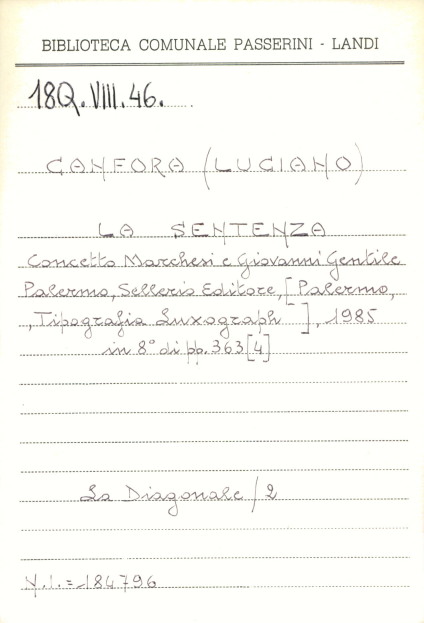 BIBLIOTECA COMUNALE PASSERINI - LANDI
18Q.VIII.46.
CANFORA (LUCIANO)
LA SENTENZA
Concetto Marchesi e Giovanni Gentile
Palermo, Sellerio Editore, [Palermo,
, Tipografia Luxograph ], 1985
in 8° di pp. 363[4]
La Diagonale / 2
N.I.= 184796